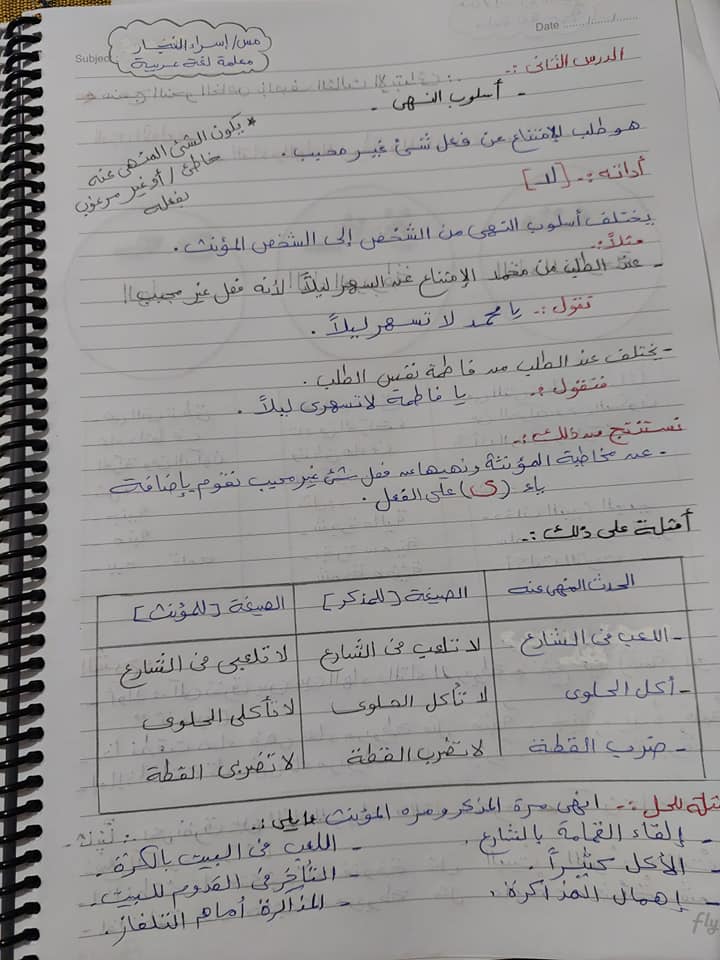 مس/ إسراء النجار
معلمة لغة عربية
Subject:
Date ....../....../......
الدرس الثانى :-
- أسلوب النهى -
هو طلب للإمتناع عن فعل شئ غير محبب .
* يكون الشئ المنهى عنه
خاطئ / أو غير مرغوب
بفعله
أداته :- [لا]
يختلف أسلوب النهى من الشخص إلى الشخص المؤنث .
مثلاً :-
- عند الطلب من محمد الإمتناع عند السهر ليلاً لأنه فعل غير محبب !!
تقول :- يا محمد لا تسهر ليلاً .
- يختلف عند الطلب من فاطمة نفس الطلب .
فتقول :- يا فاطمة لا تسهرى ليلاً .
نستنتج من ذلك :-
- عند مخاطبة المؤنثة ونهيها عن فعل شئ غير محبب نقوم بإضافة
ياء (ى) على الفعل .
أمثلة على ذلك :-
الحدث المنهى عنه الصيغة [للمذكر] الصيغة [للمؤنث]
- اللعب فى الشارع لا تلعب فى الشارع لا تلعبى فى الشارع
- أكل الحلوى لا تأكل الحلوى لا تأكلى الحلوى
- ضرب القطة لا تضرب القطة لا تضربى القطة
للحل :- انهى مرة المذكر ومرة المؤنث مايلى :-
- إلقاء القمامة بالشارع . - اللعب فى البيت بالكرة .
- الأكل كثيراً . - التأخر فى القدوم للبيت .
- إهمال المذاكرة . - المذاكرة أمام التلفاز .
fly